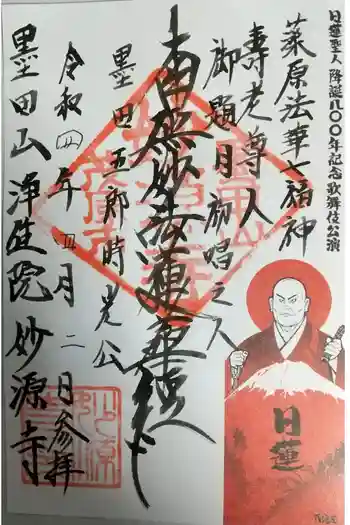 日蓮聖人 降誕八〇〇年記念歌舞伎公演
葉原法華七福神
壽老尊人
御題目初唱之人
南無妙法蓮華経
墨田五郎時光公
令和四年四月二日参拝
墨田山 浄立院 妙源寺
日蓮